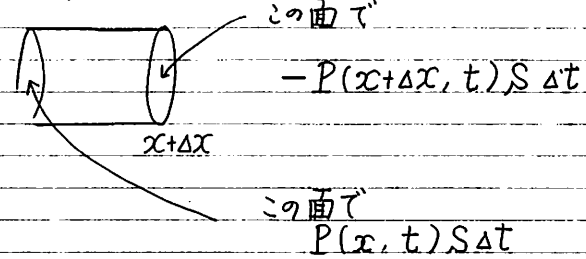 この面で
－P(x+Δx, t)SΔt
x+Δx
この面で
P(x, t)SΔt